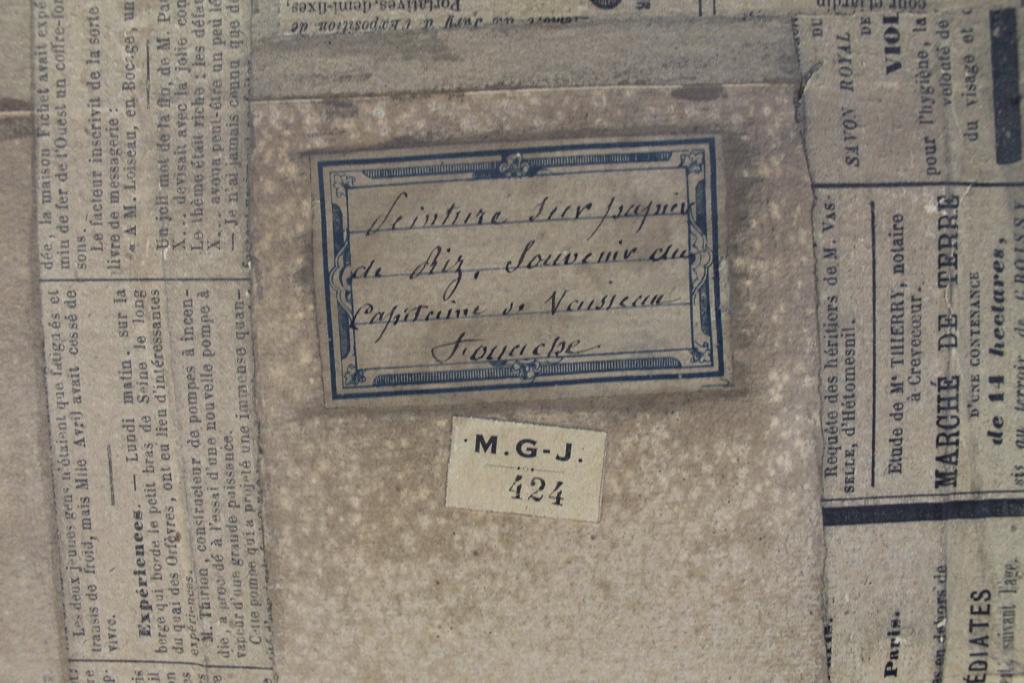 Peinture sur papier
de Riz, Souvenir du
Capitaine de Vaisseau
Fouache
M.G-J.
424
dée, la maison Fichet avait expé
miu de fer de l'Ouest un coffre-for
sons.
Le facteur inscrit de la sorte
livre de messagerie :
« A M. Loiseau, en Bocage, un
Un joli mot de la fin, de M. Pa
X... devisait avec la jolie co
Le thème était riche : les défau
X... avoua peut-être un peu l
— Je n'ai jamais connu que de
Les deux jeunes gens n'étaient que fatigués et
transis de froid, mais Mlle Avril avait cessé de
vivre.
Expériences. — Lundi matin, sur la
berge qui borde le petit bras de Seine le long
du quai des Orfèvres, ont eu lieu d'intéressantes
expériences.
M. Thirion, constructeur de pompes à incen-
die, a procédé à l'essai d'une nouvelle pompe à
vapeur d'une grande puissance.
Cette pompe qui a projeté une immense quan-
Portatives, demi-fixes,
du Jury à l'Exposition de
DU
SAVON ROYAL DE
VIOL
pour l'hygiène, la
velouté de
du visage et
Requête des héritiers de M. VAS-
SELLE, d'Hétomesnil.
Etude de Me THIERRY, notaire
à Crèvecœur.
MARCHÉ DE TERRE
D'UNE CONTENANCE
de 14 hectares,
sis au terroir de
Paris.
en dehors de
ÉDIATES
suivant l'âge.